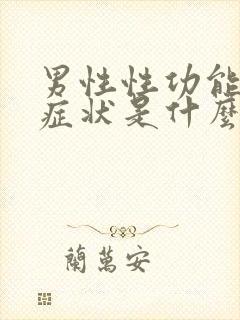 男性性功能
症状是什麼
蘭萬安